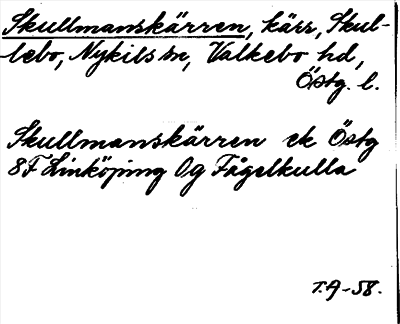 Skullmanskärren, kärr, Skul-
lebo, Nykils sn, Valkebo hd,
Östg. l.
Skullmanskärren ek Östg
8F Linköping Og Fågelkulla
T.A-58.